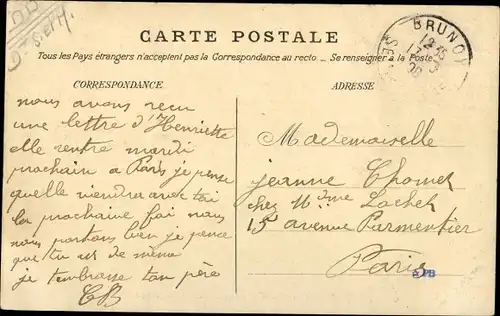 CARTE POSTALE
Tous les Pays étrangers n'acceptent pas la Correspondance au recto. — Se renseigner à la Poste
CORRESPONDANCE
ADRESSE
BRUNOY
nous avons recu
une lettre d'Henriette
elle rentre mardi
prochain a Paris je pense
quelle viendra avec toi
la prochaine foi nous
nous portons bien je pence
que tu es de même
je tembrasse ton père
CB
Mademoiselle
jeanne Thomes
chez Mme Lachet
15 avenue Parmentier
Paris